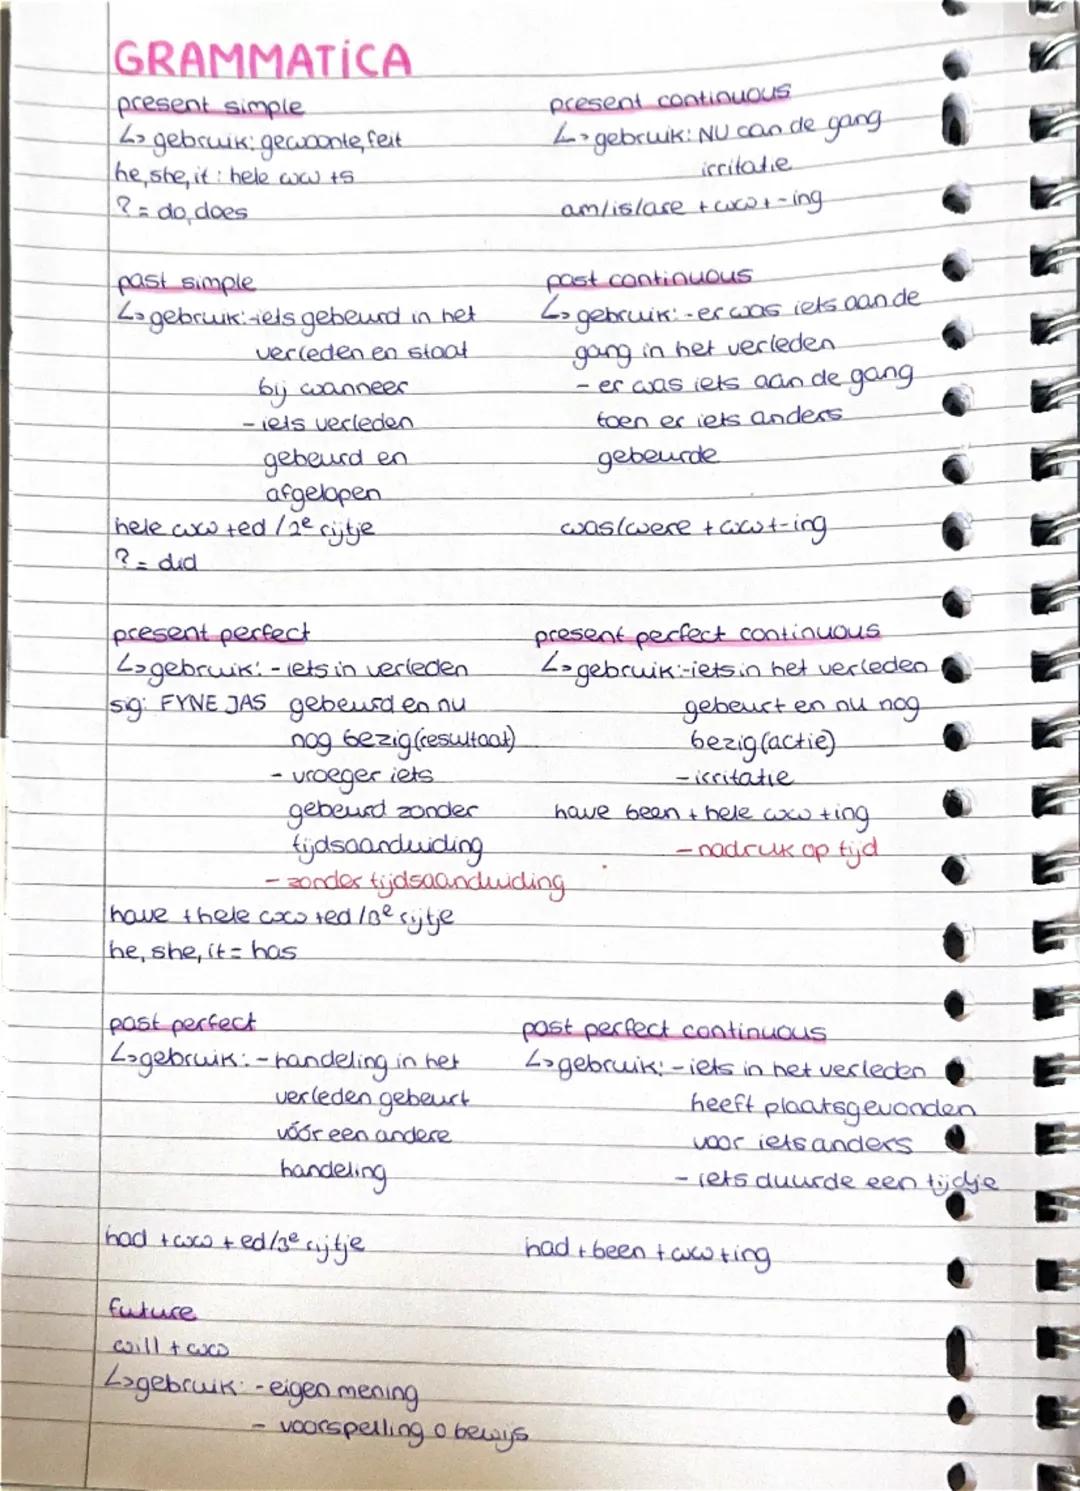 GRAMMATICA
present simple
↳ gebruik: gewoonte, feit
he, she, it : hele ww +s
? = do, does
present continuous
↳ gebruik: NU aan de gang
irritatie
am/is/are + ww + -ing
past simple
↳ gebruik: -iets gebeurd in het
verleden en staat
bij wanneer
- iets verleden
gebeurd en
afgelopen
hele ww +ed / 2e rijtje
? = did
past continuous
↳ gebruik: -er was iets aan de
gang in het verleden
- er was iets aan de gang
toen er iets anders
gebeurde
was/were + ww + -ing
present perfect
↳ gebruik: - iets in verleden
sig: FYNE JAS gebeurd en nu
nog bezig (resultaat)
- vroeger iets
gebeurd zonder
tijdsaanduiding
- zonder tijdsaanduiding
have + hele ww +ed /3e rijtje
he, she, it = has
present perfect continuous
↳ gebruik: -iets in het verleden
gebeurt en nu nog
bezig (actie)
- irritatie
have been + hele ww +ing
- nadruk op tijd
past perfect
↳ gebruik: - handeling in het
verleden gebeurt
vóór een andere
handeling
had + ww + ed/3e rijtje
past perfect continuous
↳ gebruik: - iets in het verleden
heeft plaatsgevonden
voor iets anders
- iets duurde een tijdje
had + been + ww +ing
future
will + ww
↳ gebruik: - eigen mening
- voorspelling 0 bewijs